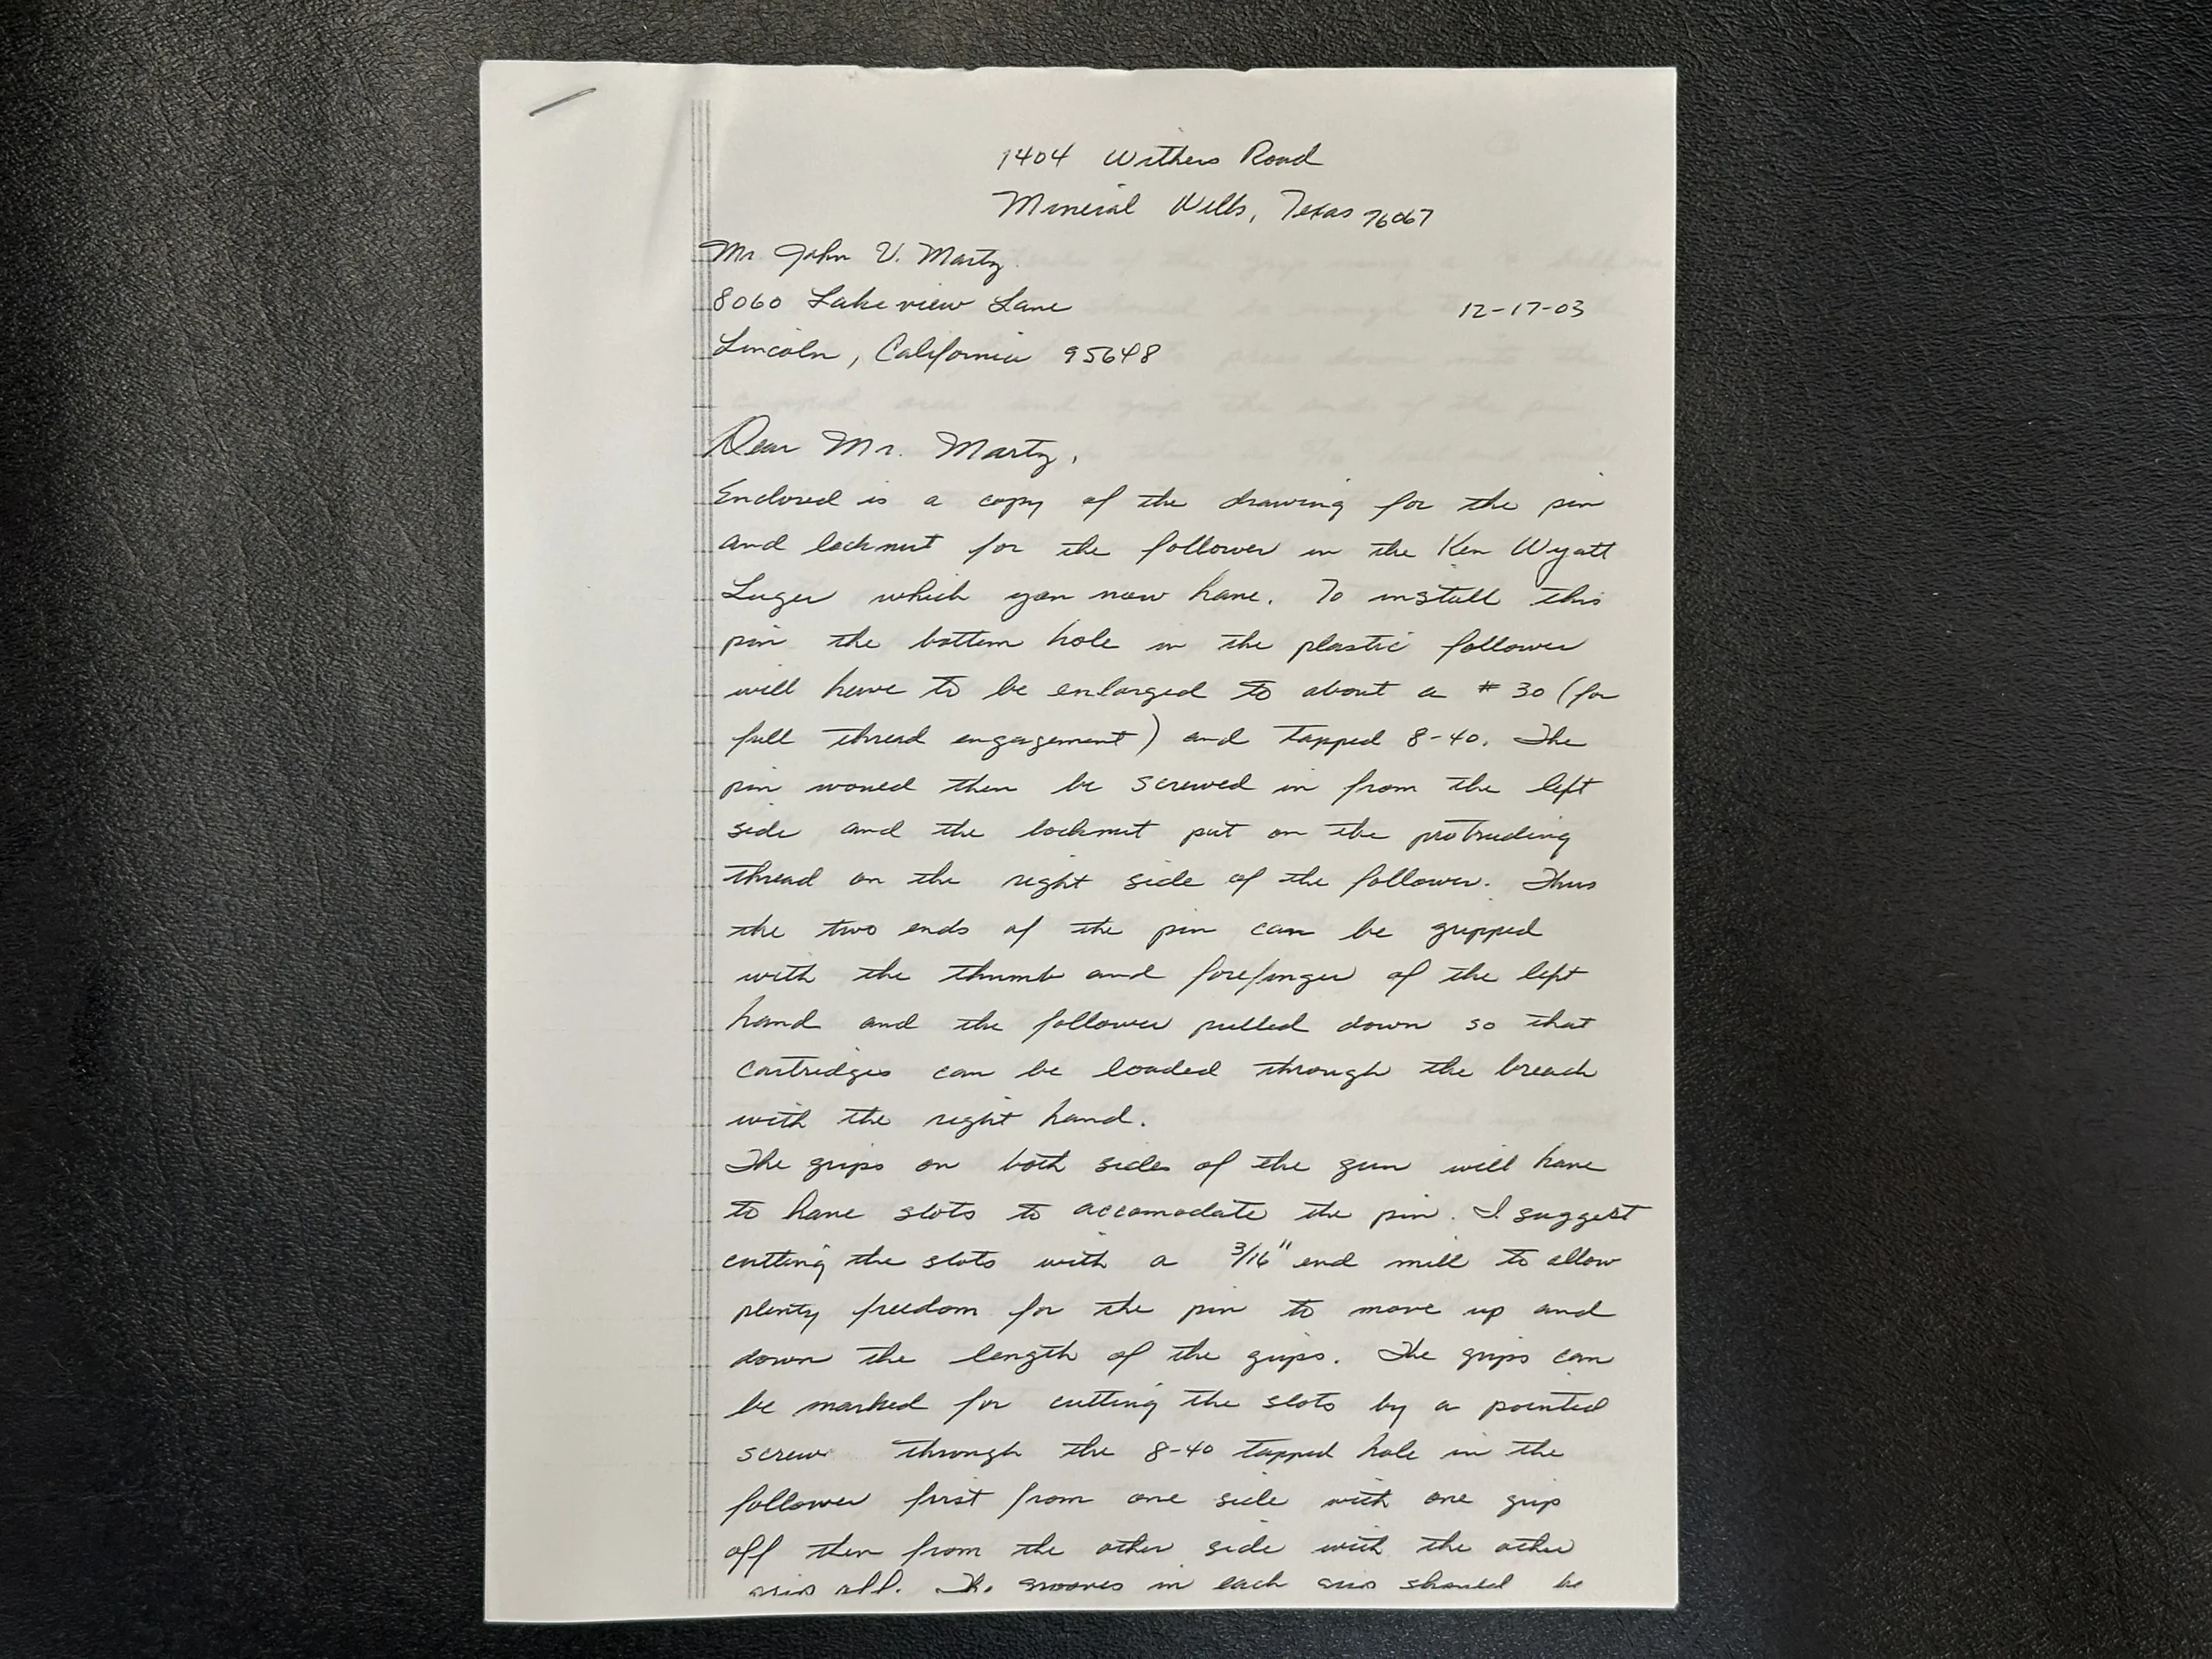 1404 Withers Road
Mineral Wells, Texas 76067
Mr. John V. Martz
8060 Lakeview Lane
12-17-03
Lincoln, California 95648
Dear Mr. Martz,
Enclosed is a copy of the drawing for the pin
and locknut for the follower in the Ken Wyatt
Luger which you now have. To install this
pin the bottom hole in the plastic follower
will have to be enlarged to about a #30 (for
full thread engagement) and tapped 8-40. The
pin would then be screwed in from the left
side and the locknut put on the protruding
thread on the right side of the follower. Thus
the two ends of the pin can be gripped
with the thumb and forefinger of the left
hand and the follower pulled down so that
cartridges can be loaded through the breach
with the right hand.
The grips on both sides of the gun will have
to have slots to accomodate the pin. I suggest
cutting the slots with a 3/16" end mill to allow
plenty freedom for the pin to move up and
down the length of the grips. The grips can
be marked for cutting the slots by a pointed
screw through the 8-40 tapped hole in the
follower first from one side with one grip
off then from the other side with the other
grip off. The grooves in each grip should be